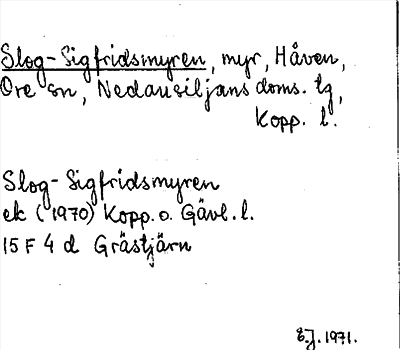 Slog-Sigfridsmyren, myr, Håven,
Ore sn, Nedansiljans doms. tg,
Kopp. l.
Slog-Sigfridsmyren
ek (1970) Kopp. o. Gävl. l.
15 F 4 d Grästjärn
E.J. 1971.